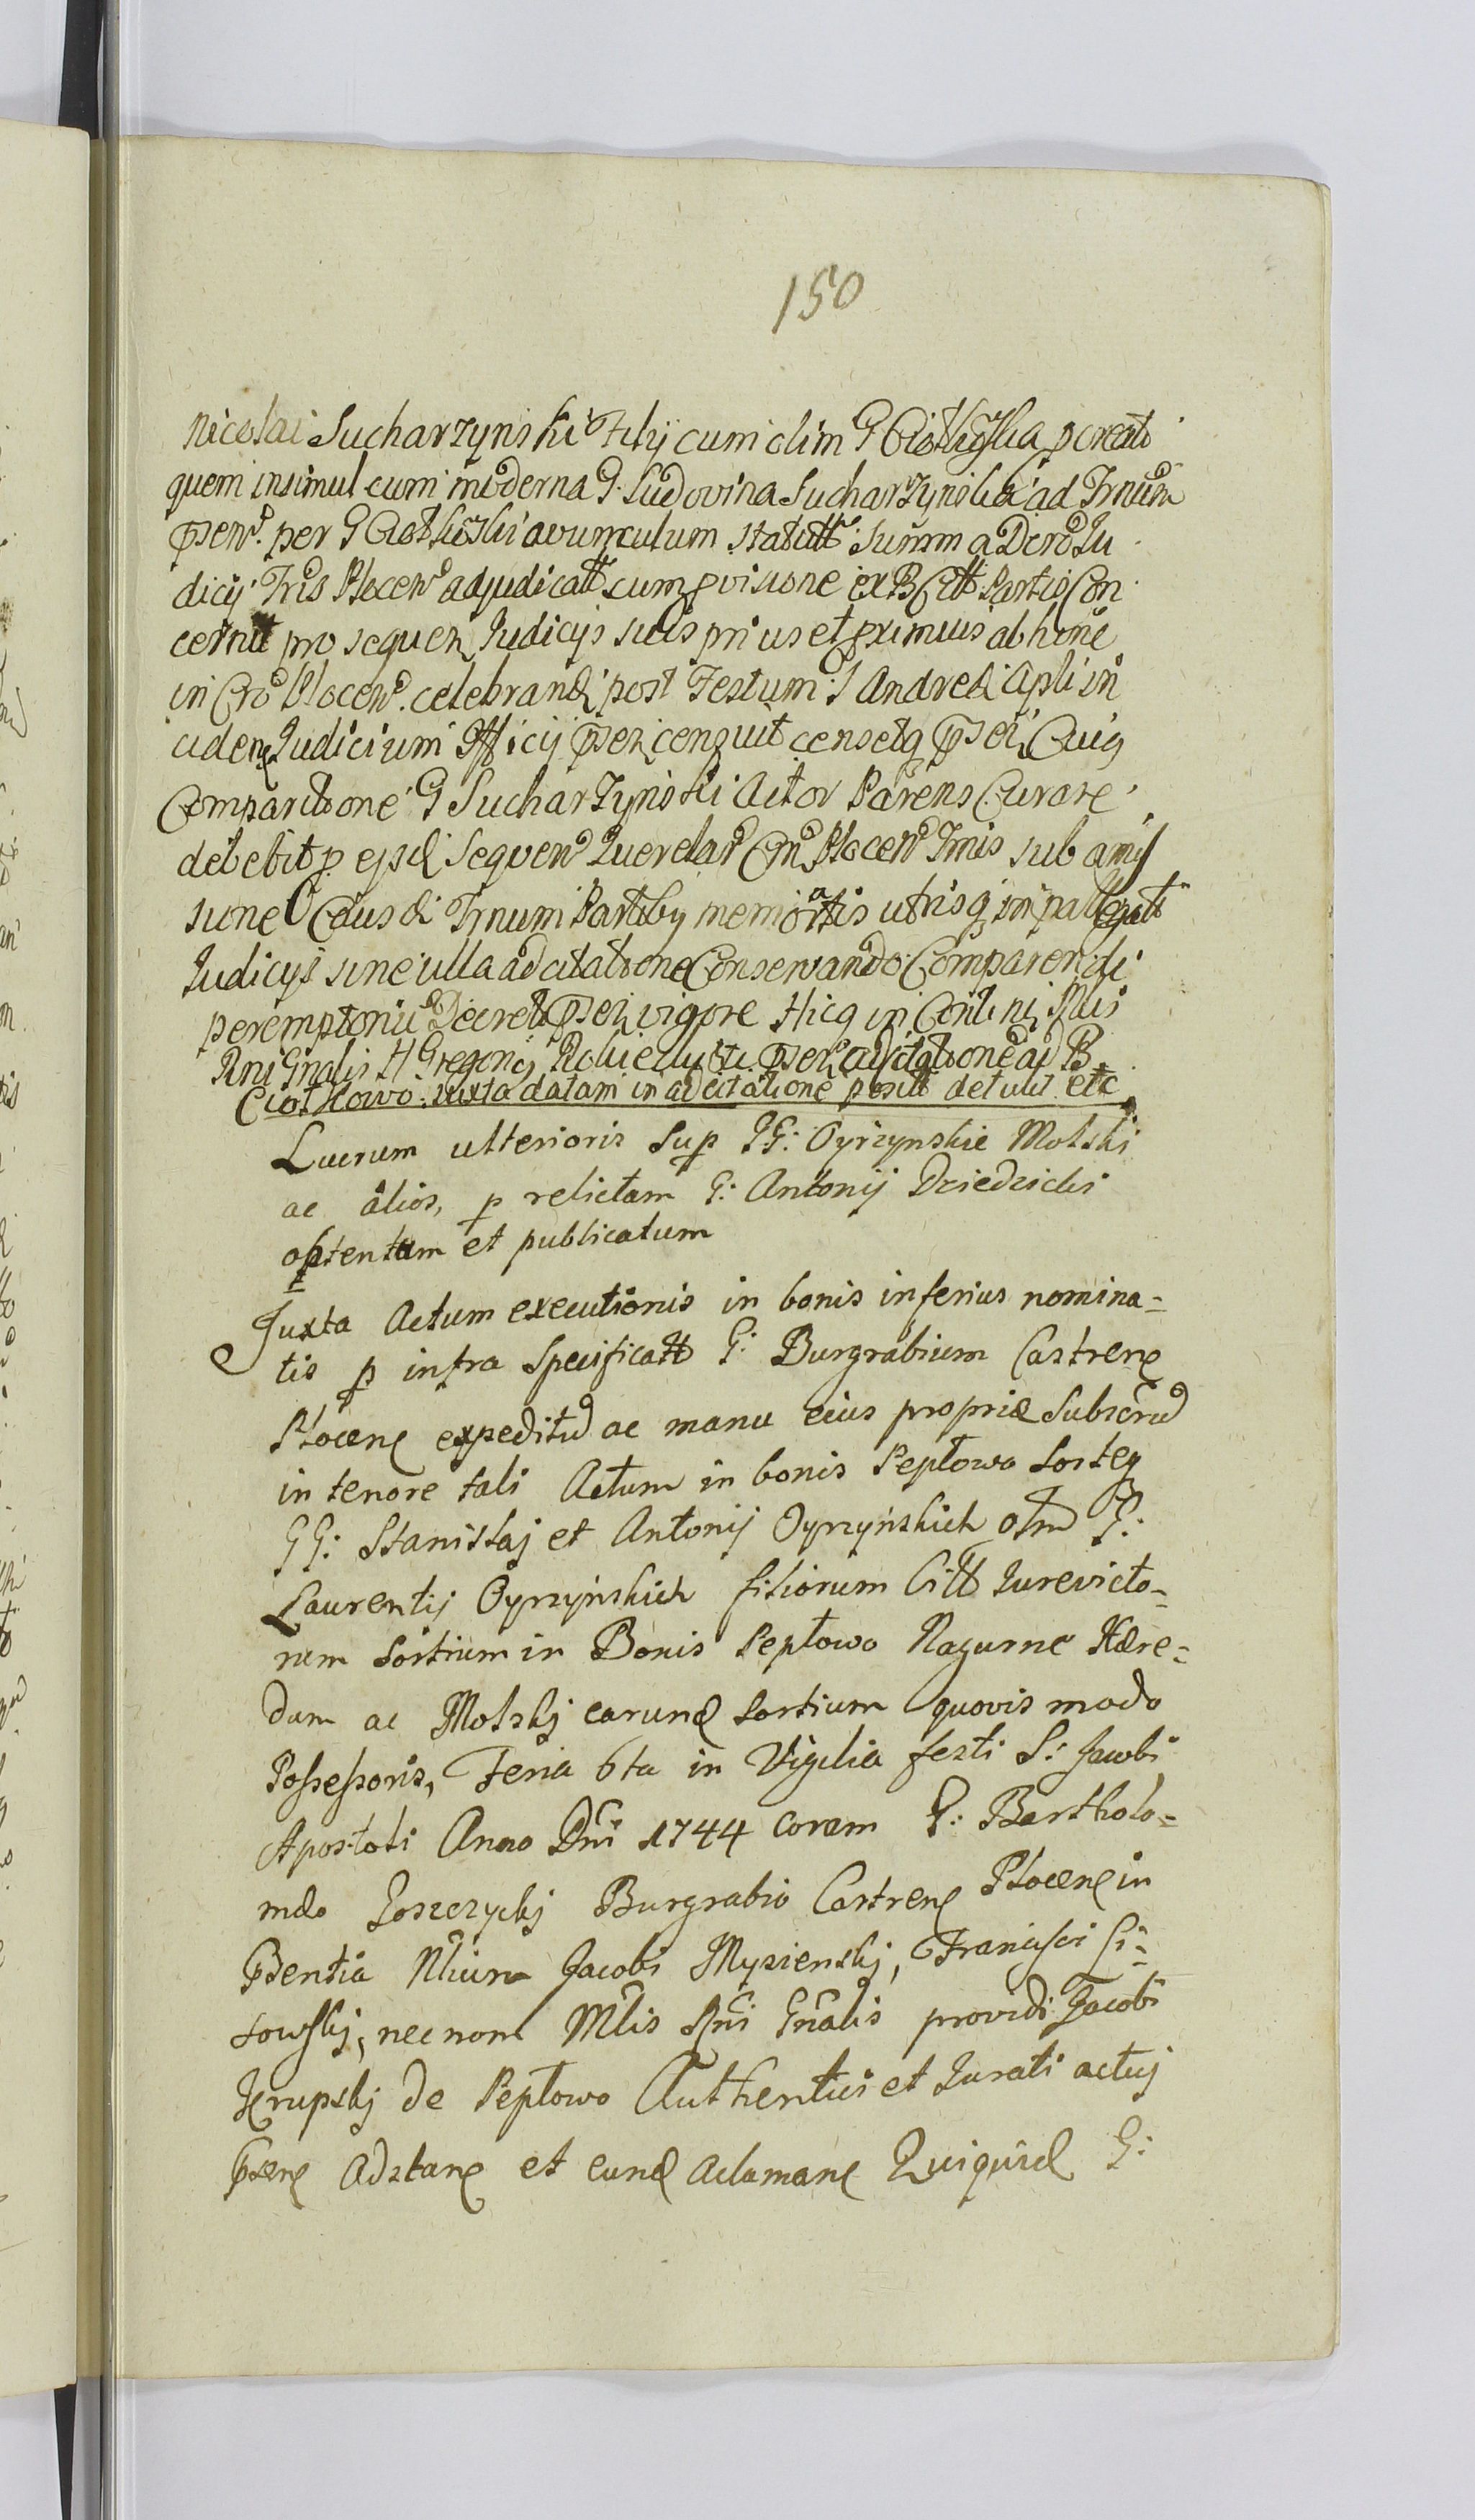 150
Nicolai Sucharzynski Filij cum olim G Ciotkoska pcreati
quem insimul cum moderna G. Ludovina Sucharzynska ad Trnum
per G Ciotkoski avunculum statutt summ a Dero Ju
dicij Tris Plocen adjudicatt cum pvisione ex B Citt Partis Con
cernit pro sequen Judicijs suis prius et proximius ab hinc
in Cro Plocen. celebrand post Festum S Andreæ Apli in
ciden Judicium Officij censuit censetq Cuiq
Comparitione G Sucharzynski Actor Parens Curare
debebit p ejsd Sequen Querelar Cn Plocen Tmis sub amis
sione Causæ Trnum Partiby memoratis utrisq in
Judicijs sine ulla adcitatione Conservando Comparendi
peremptorie Decreti vigore Hicq in Conti
Rni Gnalis H Gregorij adcitatione ad B
Ciotkowo juxta datam in adcitatione posit detulit etc
Lucrum ulterioris Sup GG: Oyrzynskie Molski
ac alios, p relictam G: Antonij Dziedzicki
obtentum et publicatum
Juxta Actum executionis in bonis inferius nomina=
tis p infra Specificatt G: Burgrabium Castren
Płocen expeditu ac manu eius propriæ Subscru
in tenore tali Actum in bonis Pepłowo Sorteq
GG: Stanisłaj et Antonij Oyrzyńskich olm G:
Laurentij Oyrzyńskich filiorum Citt Jurevicto=
rum Sortium in Bonis Pepłowo Nagurne Hære=
dum ac Molskj earund Sortium quovis modo
Possessoris, Feria 6ta in Vigilia festi S: Jacobi
Apostoli Anno Dni 1744 coram G: Bartholo=
mæo Goszczyckj Burgrabio Castren Płocen in
Psentia Nlium Jacobi Myzienskj, Francisci Li=
sowskj, nec non Mlis Rni Gnalis providi Jacobi
Krupskj de Pepłowo Authentici et Jurati actuj
psen Adstan et eund aclaman Quiquid G: